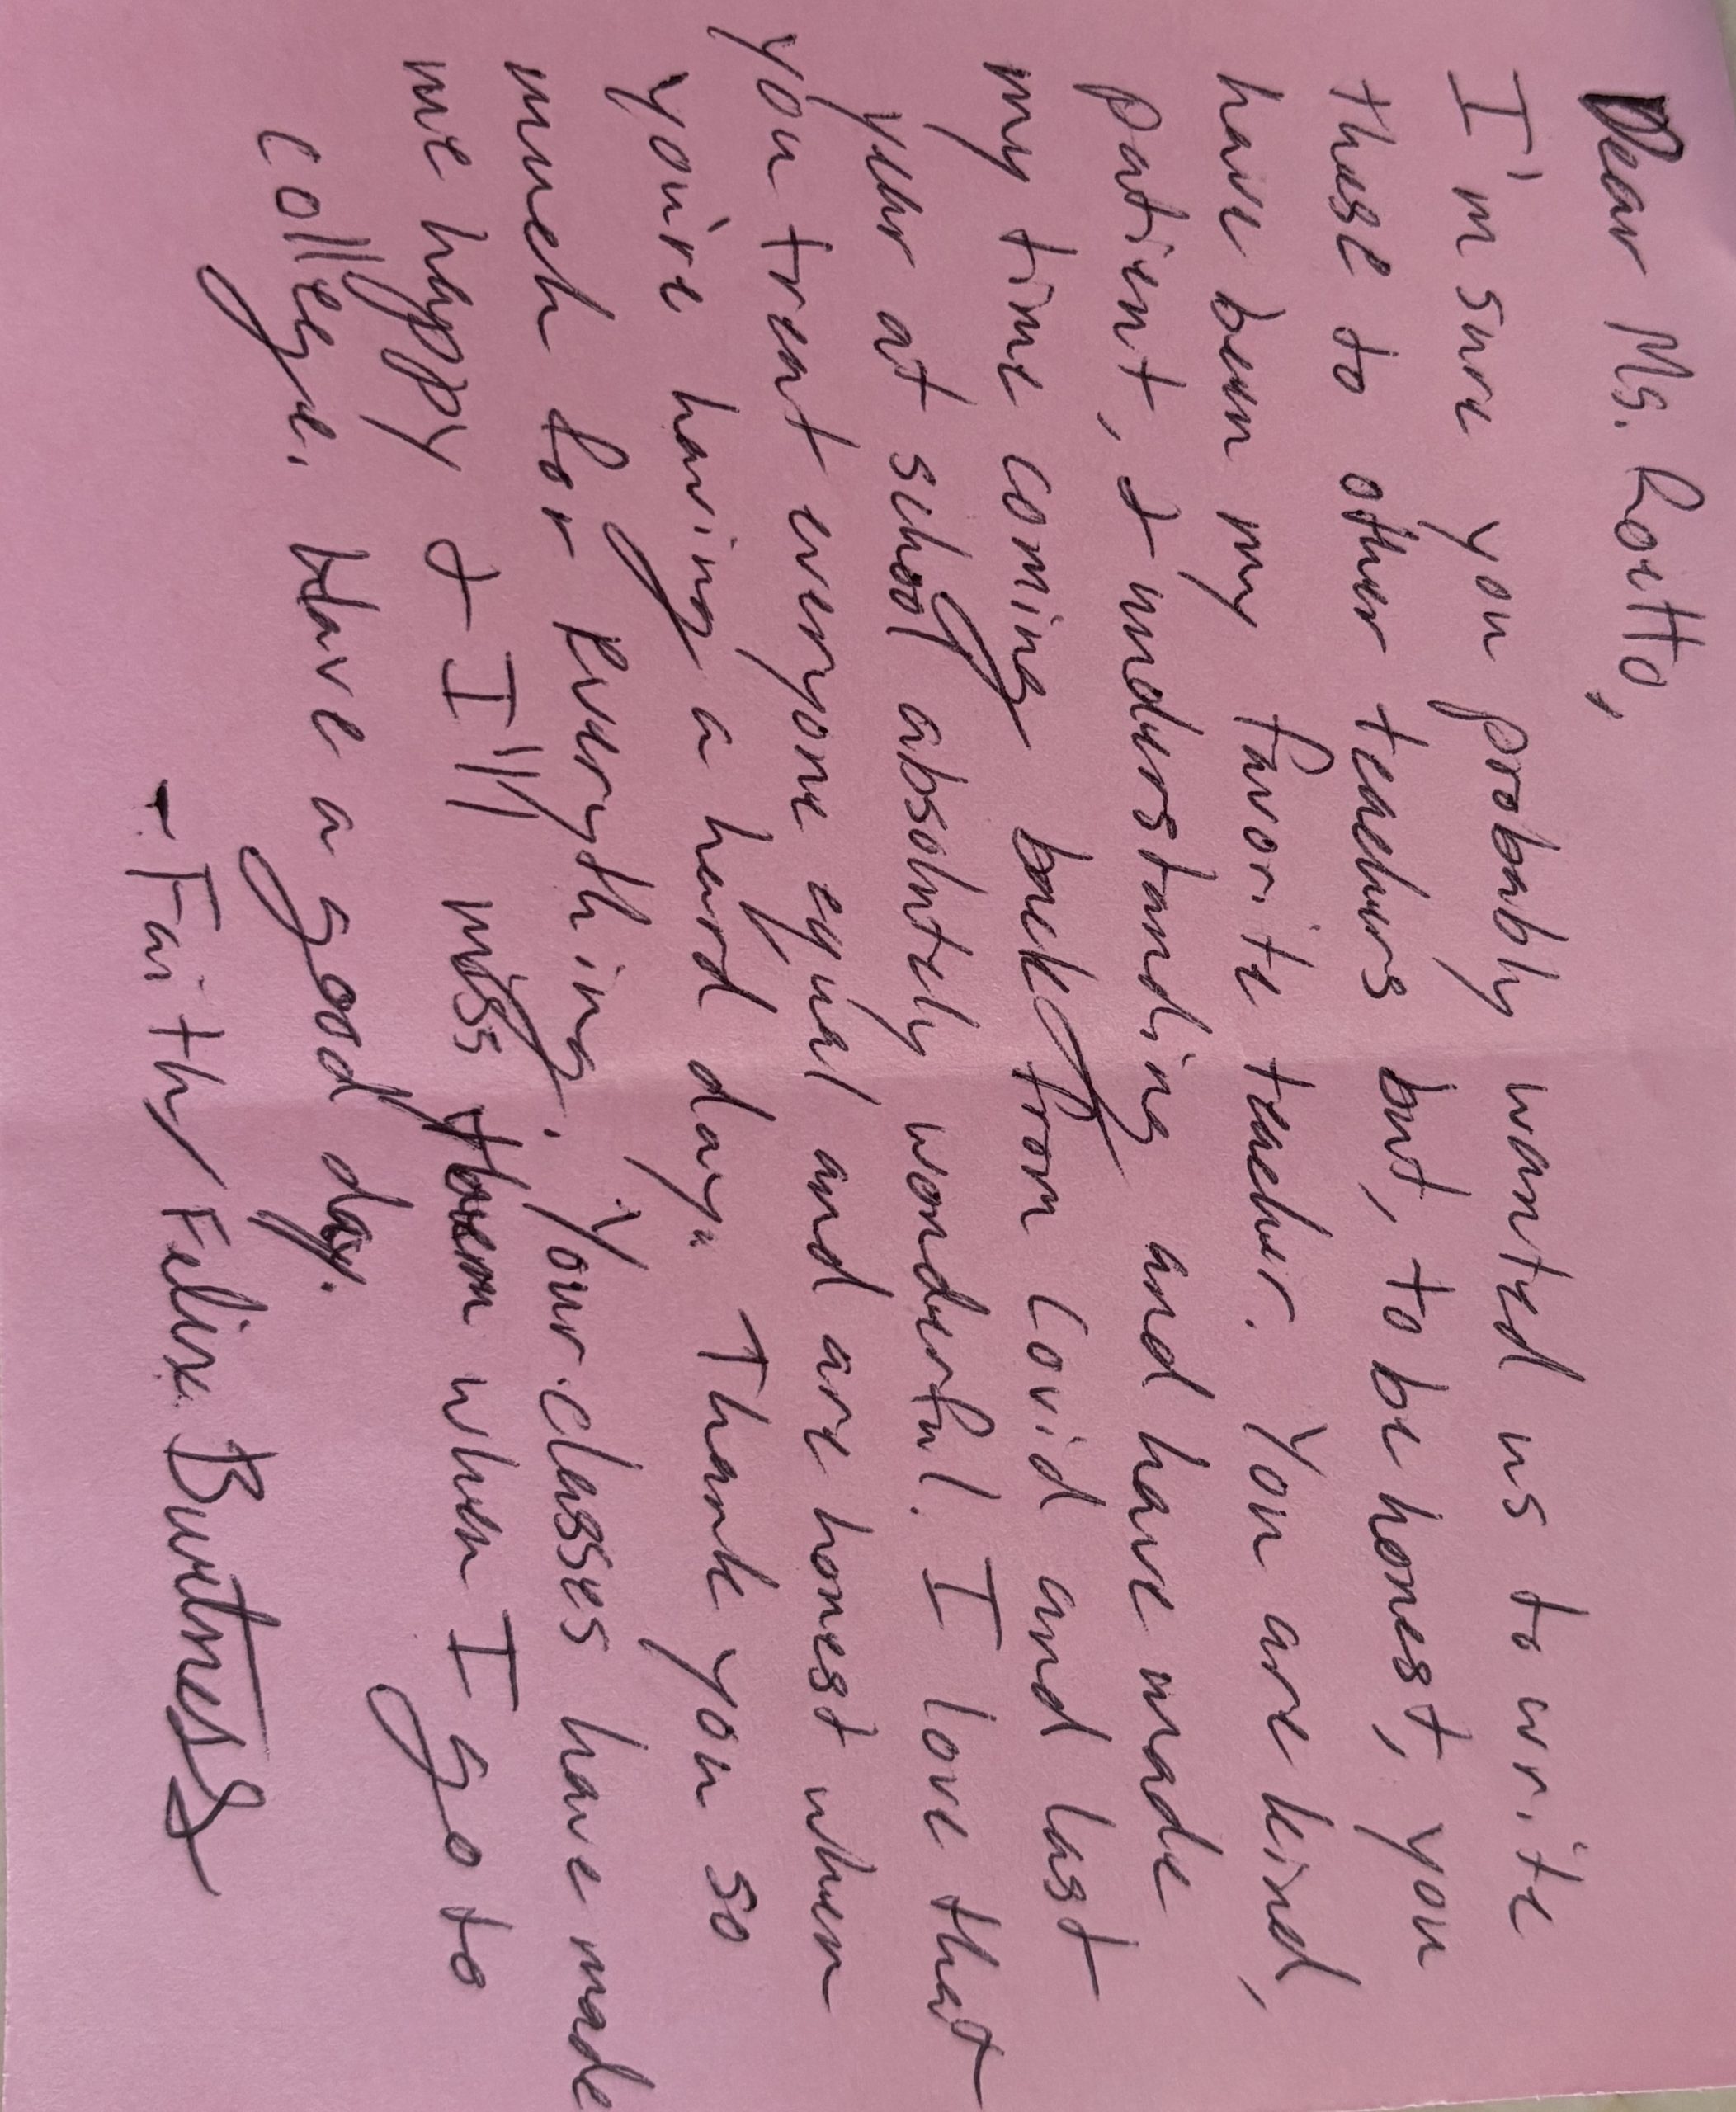 Dear Ms. Loutto,
I'm sure you probably wanted us to write
these to other teachers but, to be honest, you
have been my favorite teacher. You are kind,
patient, & understanding and have made
my time coming back from Covid and last
year at school absolutely wonderful. I love that
you treat everyone equal and are honest when
you're having a hard day. Thank you so
much for everything. Your classes have made
me happy & I'll miss them when I go to
college. Have a good day.
- Faith/Felix